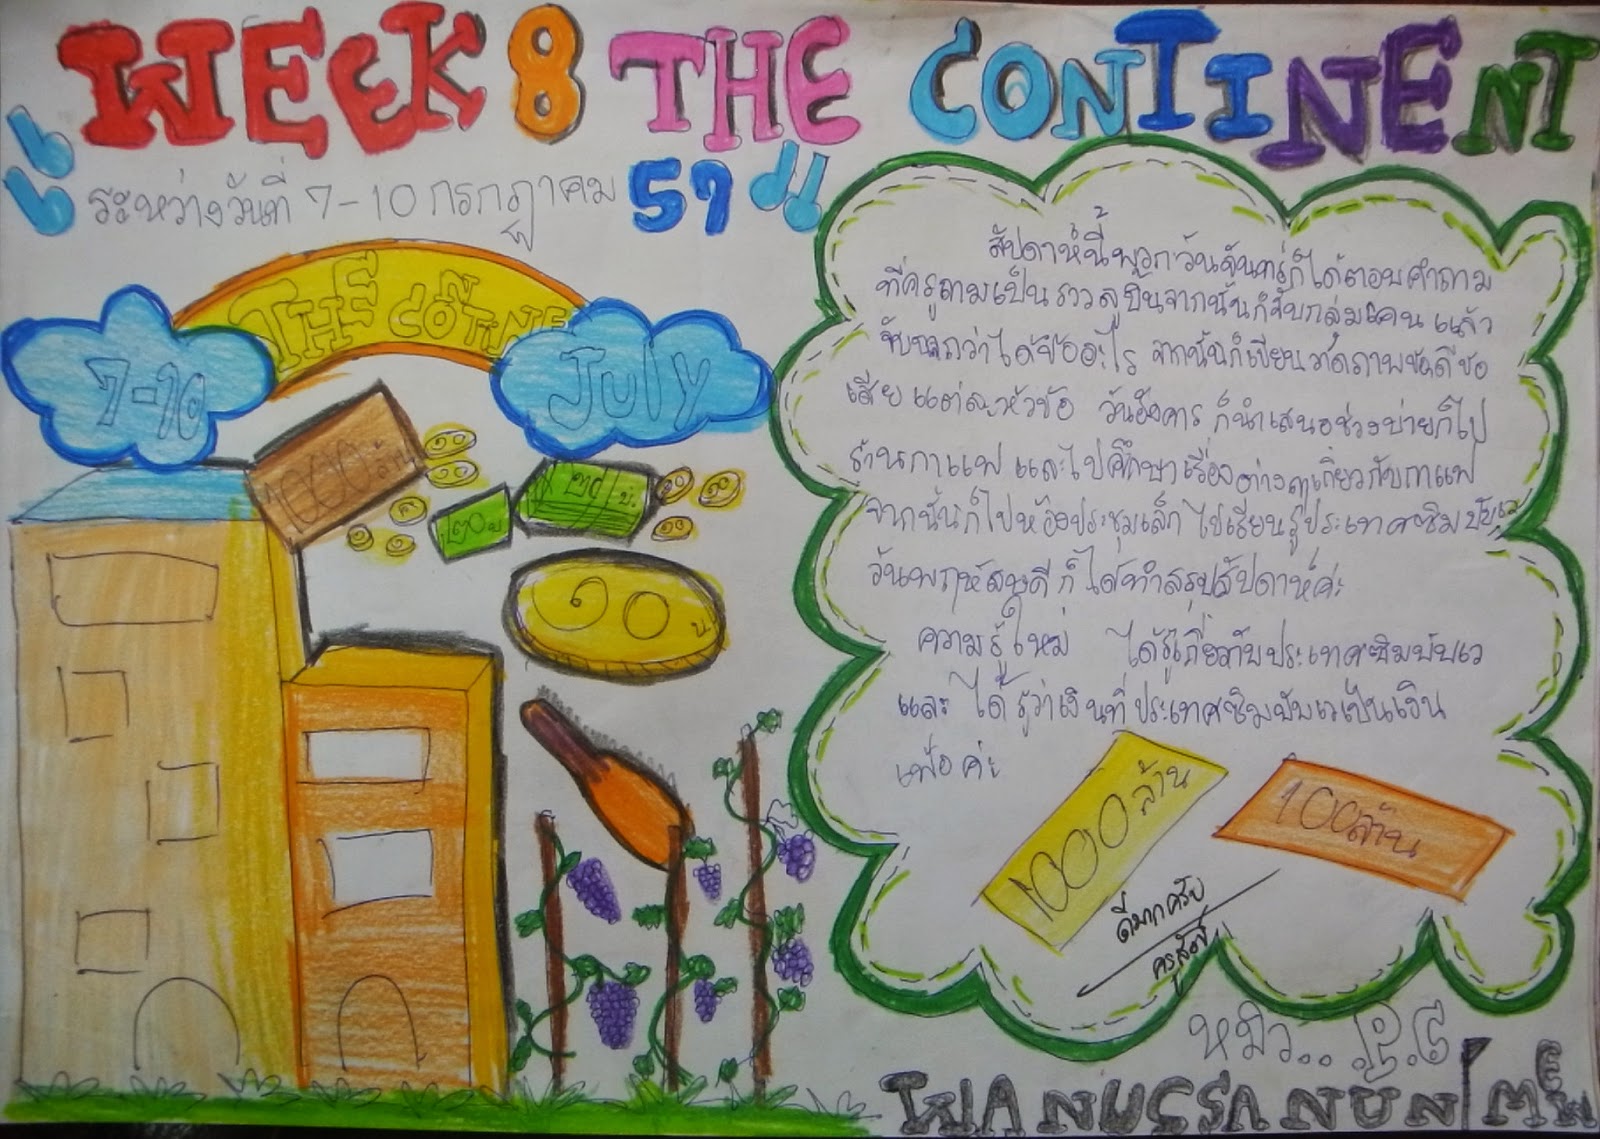 WEEK 8 THE CONTINENT
ระหว่างวันที่ 7-10 กรกฎาคม 57
THE CONTINE
7-10
July
1000 ล้าน
๒๐
๒๐ บ
๑๐ บ.
สัปดาห์นี้พวก วันจันทร์ก็ได้ตอบคำถาม
ที่ครูถามเป็นราว จากนั้นก็จับกลุ่ม คน แล้ว
ว่าได้ข้ออะไร จากนั้นก็เขียนวาดภาพข้อดีข้อ
เสีย แต่ละหัวข้อ วันอังคาร ก็นำเสนอช่วงบ่ายก็ไป
ร้านกาแฟ และไปศึกษาเรื่องต่างๆเกี่ยวกับกาแฟ
จากนั้นก็ไปห้องประชุมเล็ก ไปเรียนรู้ประเทศซิมบับเว
วันพฤหัสบดี ก็ได้ทำสรุปสัปดาห์ค่ะ
ความรู้ใหม่ ได้รู้เกี่ยวกับประเทศซิมบับเว
และ ได้รู้ว่าเงินที่ประเทศซิมบับเวเป็นเงิน
เฟ้อ ค่ะ
1000 ล้าน
100ล้าน
ดีมากครับ
ครูสังข์
หมิว.. P.6